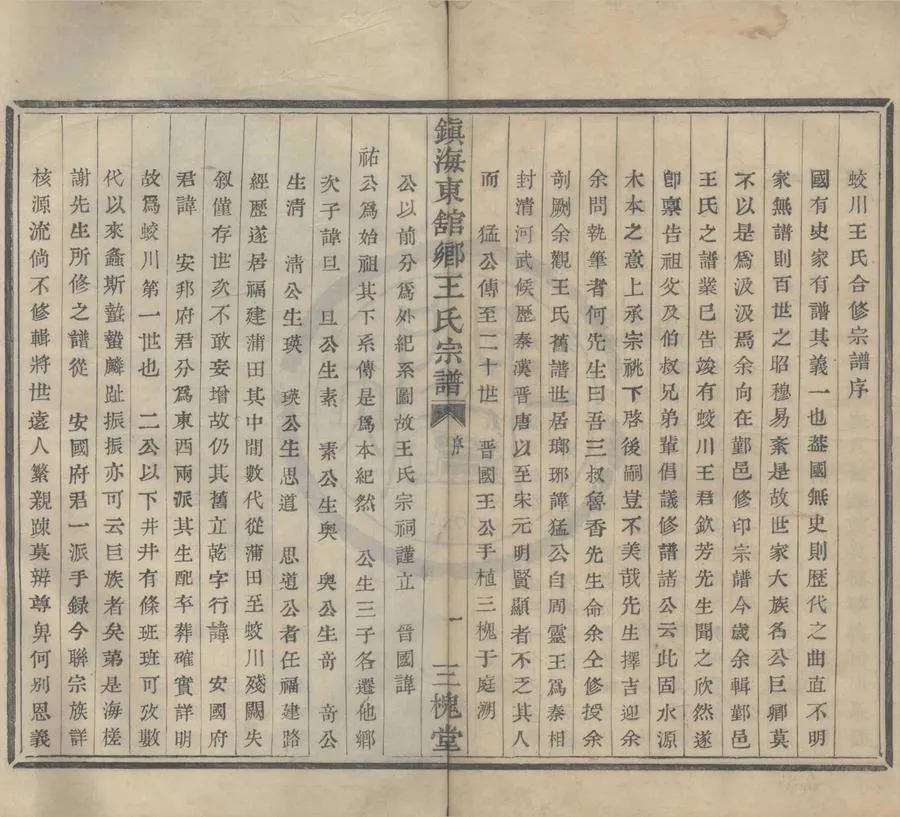 蛟川王氏合修宗譜序
國有史家有譜其義一也蓋國無史則歷代之曲直不明
家無譜則百世之昭穆易紊是故世家大族名公巨卿莫
不以是為汲汲焉余向在鄞邑修印宗譜今歲余輯鄞邑
王氏之譜業已告竣有蛟川王君欽芳先生聞之欣然遂
卽稟告祖父及伯叔兄弟輩倡議修譜諸公云此固水源
木本之意上承宗祧下啓後嗣豈不美哉先生擇吉迎余
余問執筆者何先生曰吾三叔魯香先生命余仝修授余
剞劂余觀王氏舊譜世居瑯琊諱猛公自周靈王為秦相
封清河武候歷秦漢晉唐以至宋元明賢顯者不乏其人
而 猛公傳至二十世 晉國王公手植三槐于庭溯
鎮海東舘鄉王氏宗譜 序 一 三槐堂
公以前分為外紀系圖故王氏宗祠謹立 晉國諱
祐公為始祖其下系傳是為本紀然 公生三子各遷他鄉
次子諱旦 旦公生素 素公生奥 奥公生竒 竒公
生清 清公生瑛 瑛公生思道 思道公者任福建路
經歷遂居福建蒲田其中間數代從蒲田至蛟川殘闕失
叙僅存世次不敢妄增故仍其舊立乾字行諱 安國府
君諱 安邦府君分為東西兩派其生配卒葬確實詳明
故為蛟川第一世也 二公以下井井有條班班可攷數
代以來螽斯蟄蟄麟趾振振亦可云巨族者矣第是海槎
謝先生所修之譜從 安國府君一派手録今聯宗族詳
核源流倘不修輯將世逺人繁親疎莫辨尊昇何别恩義